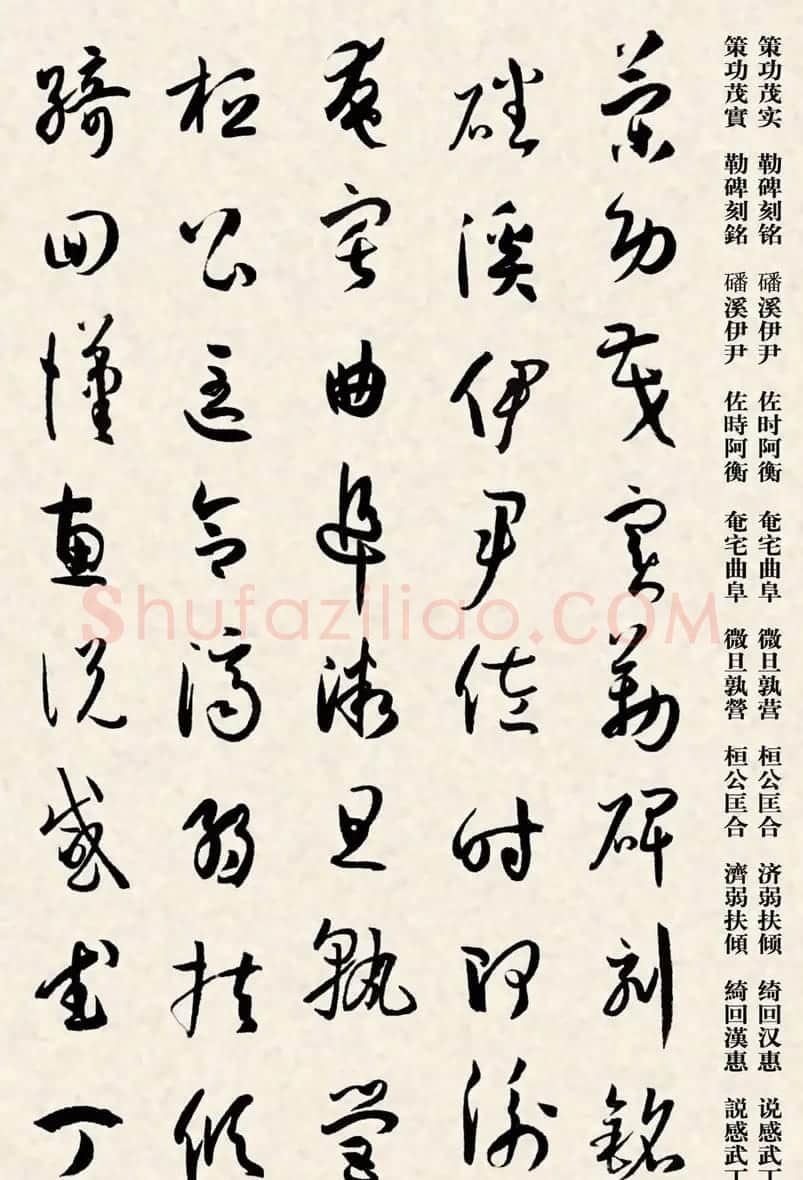 策功茂实 勒碑刻铭 磻溪伊尹 佐时阿衡 奄宅曲阜 微旦孰营 桓公匡合 济弱扶倾 绮回汉惠 说感武丁
策功茂實 勒碑刻銘 磻溪伊尹 佐時阿衡 奄宅曲阜 微旦孰營 桓公匡合 濟弱扶傾 綺回漢惠 説感武丁
策功茂實勒碑刻銘
磻溪伊尹佐時阿衡
奄宅曲阜微旦孰營
桓公匡合濟弱扶傾
綺回漢惠説感武丁
Shufaziliao.COM